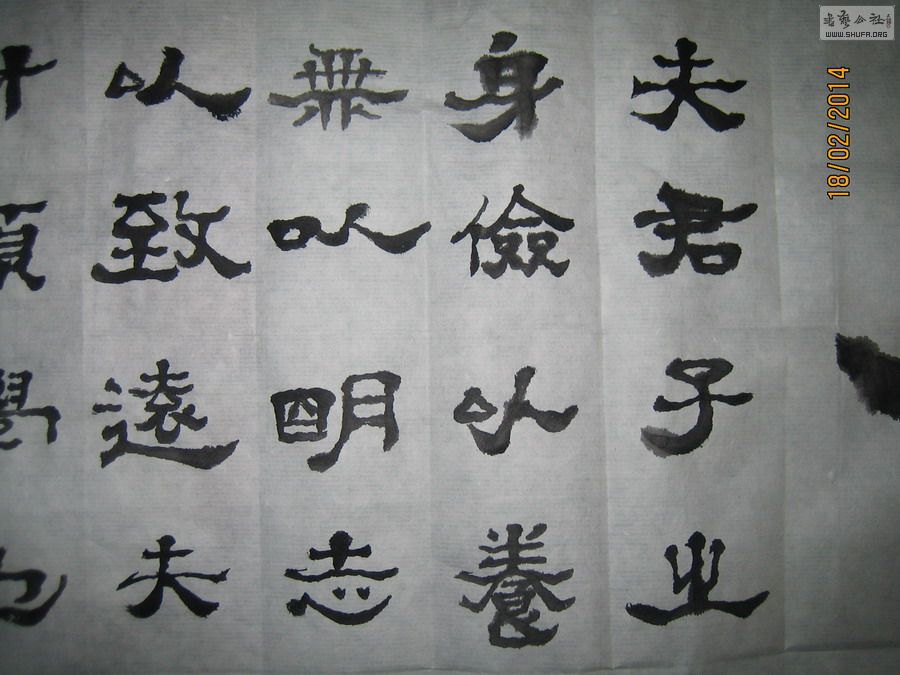 夫君子之
身儉以養
無以明志
以致遠夫
書藝公社
WWW.SHUFA.ORG
18/02/2014